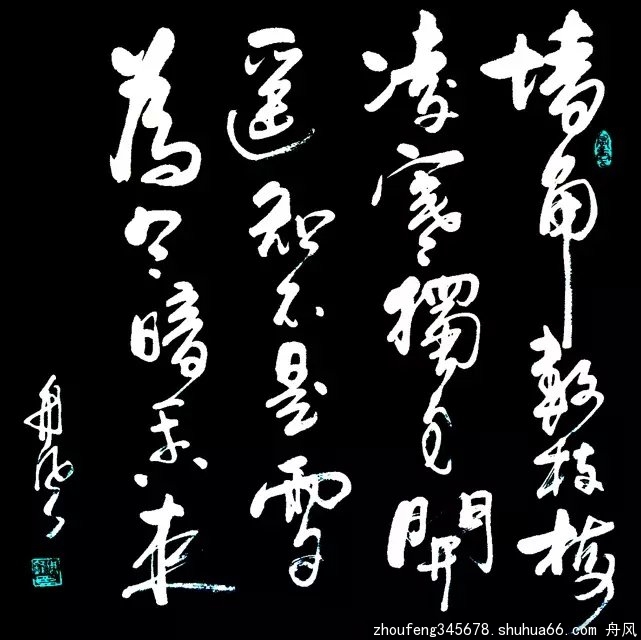 墙角數枝梅
凌寒獨自開
遥知不是雪
為有暗香来
舟風
zhoufeng345678.shuhua66.com 舟风